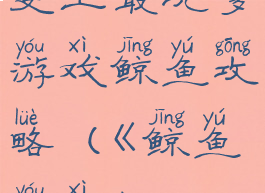 yóu xì jīng yú gōng
游戏鲸鱼攻
lüè jīng yú
略（《鲸鱼
yóu xì